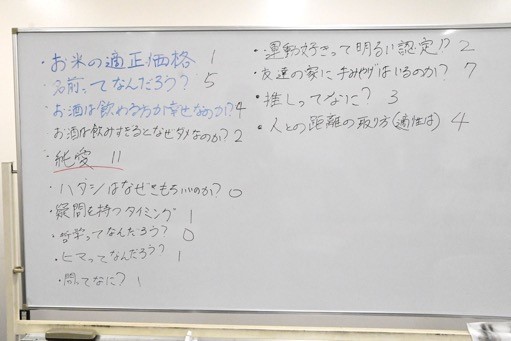 ・お米の適正価格 1
・名前ってなんだろう? 5
・お酒は飲める方が幸せなのか? 4
・お酒は飲みすぎるとなぜダメなのか? 2
・純愛 11
・ハダシはなぜきもちいいのか? 0
・疑問を持つタイミング 1
・哲学ってなんだろう? 0
・ヒマってなんだろう? 1
・問ってなに? 1
・運動好きって明るい認定!? 2
・友達の家に手みやげはいるのか!? 7
・推しってなに? 3
・人との距離の取り方(適性は) 4